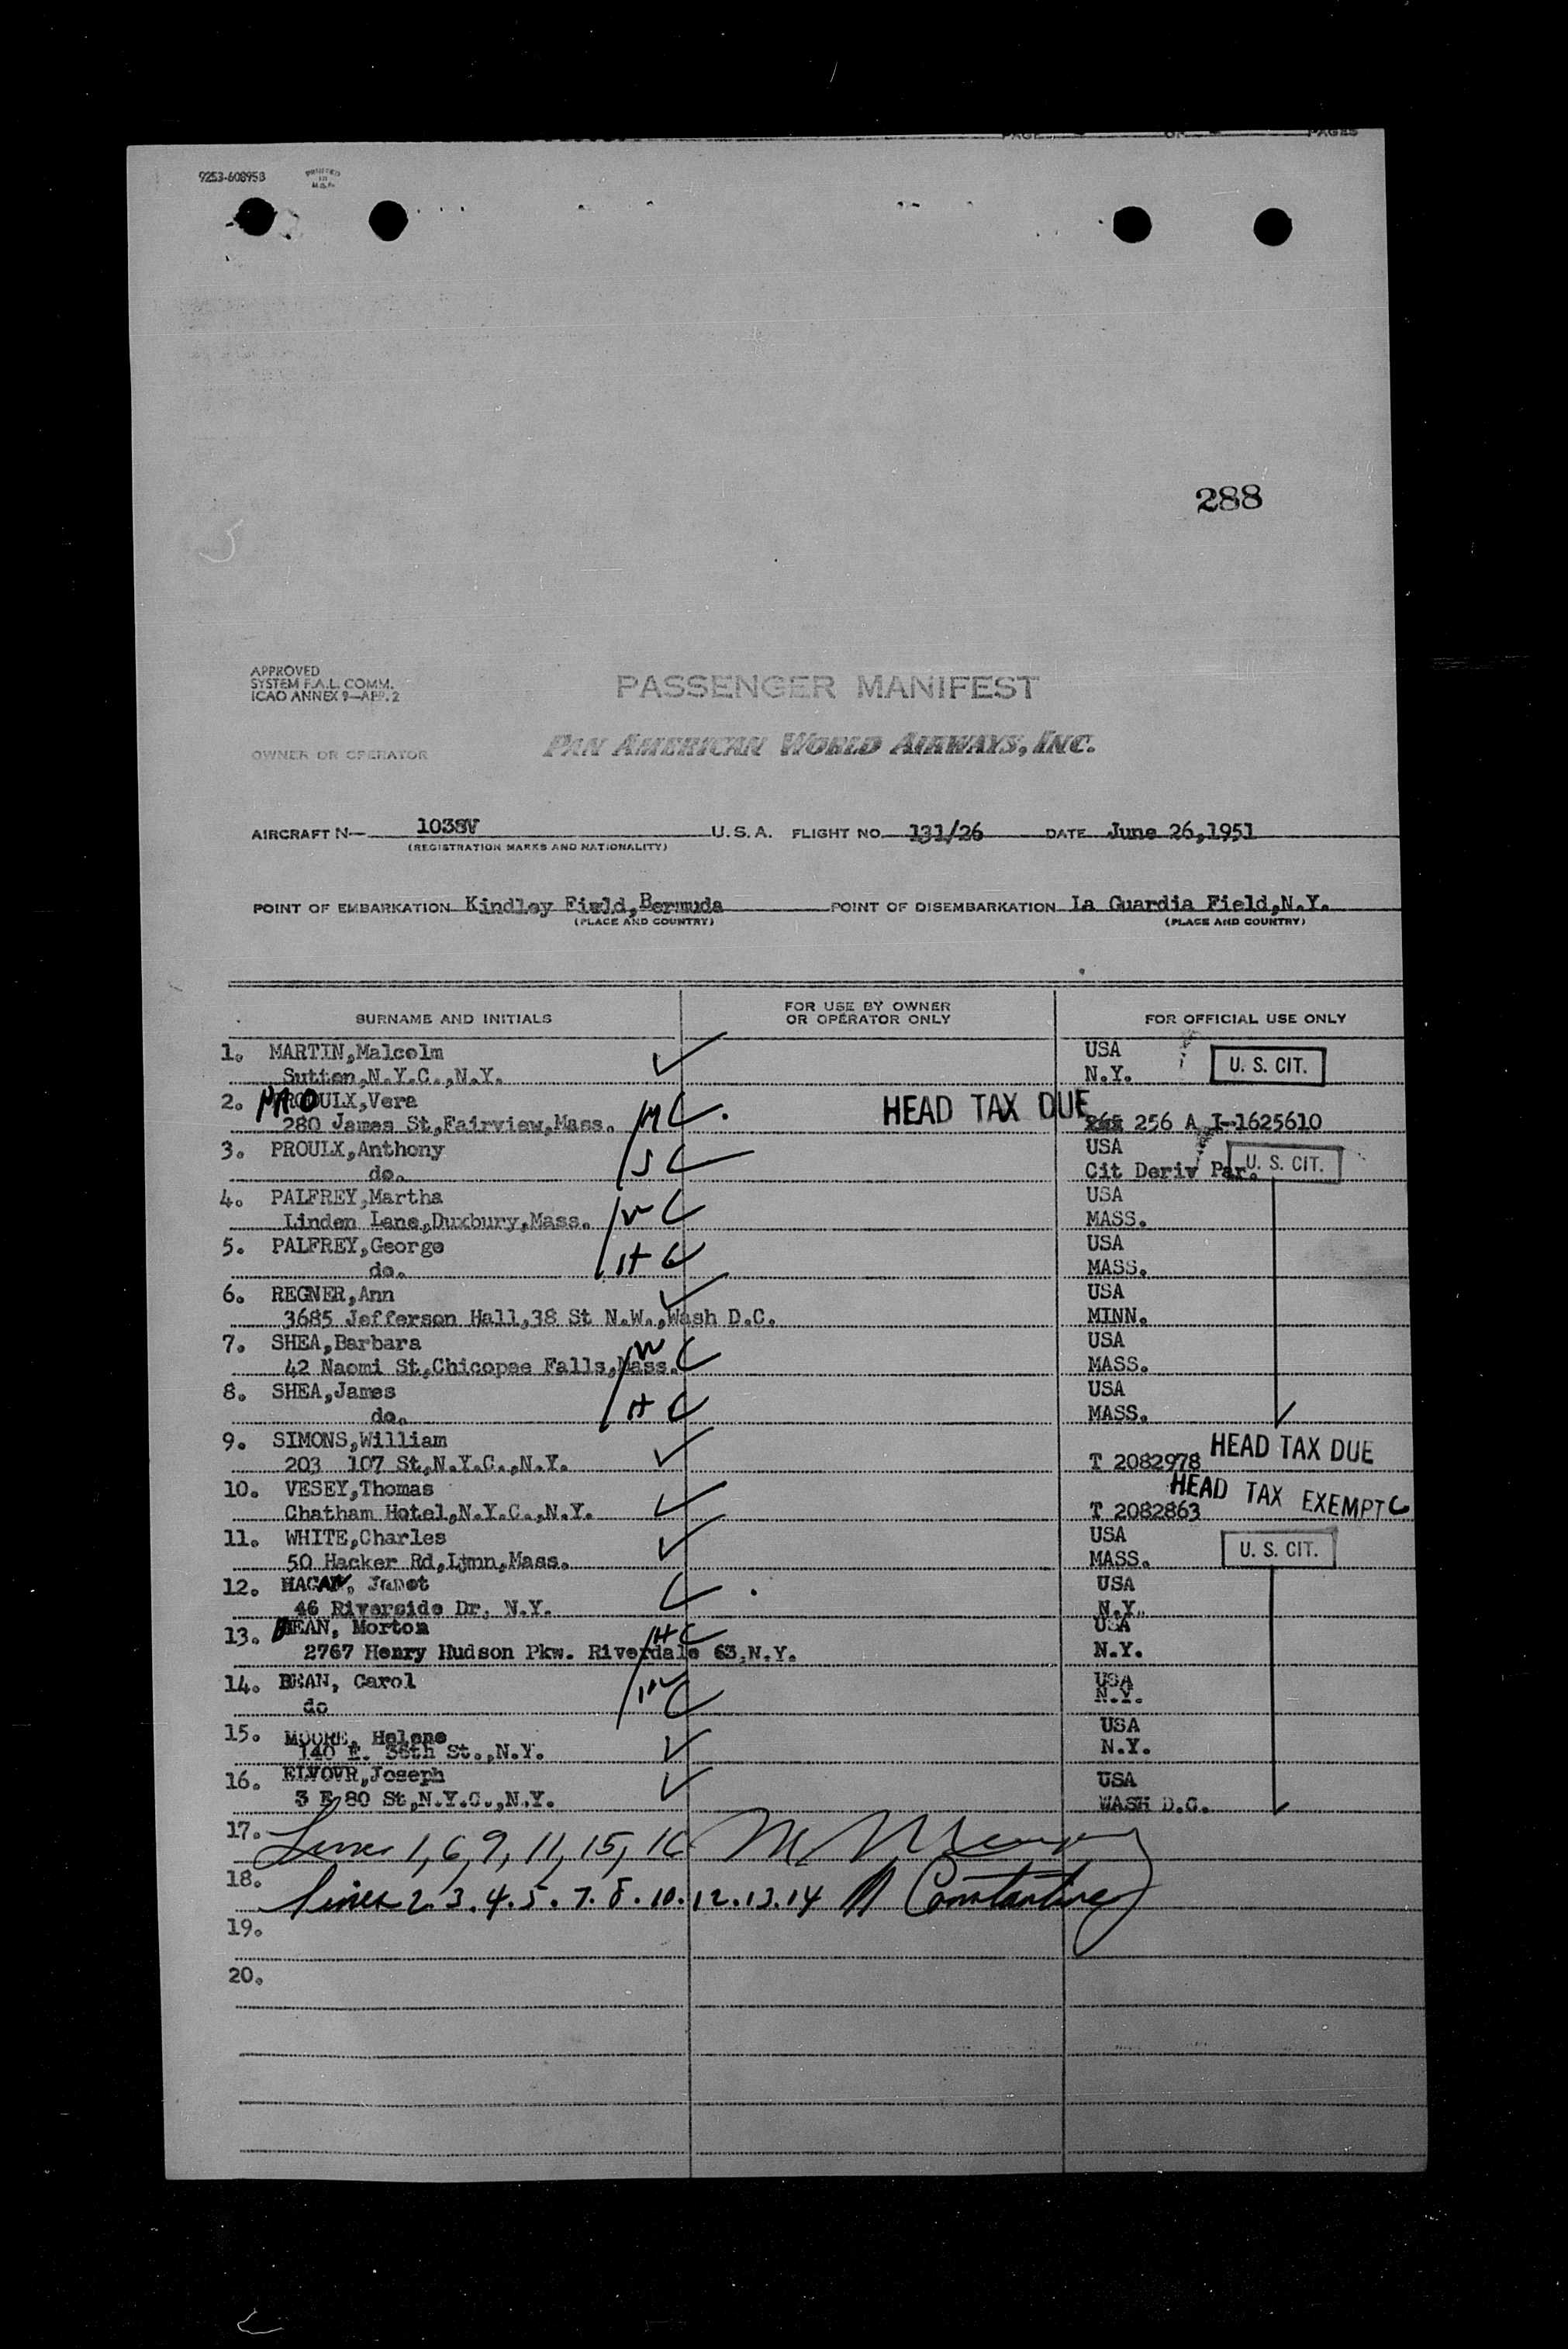 PAGE OF PAGES
9253-60895B PRINTED IN U.S.A.
288
APPROVED
SYSTEM F.A.L. COMM.
ICAO ANNEX 9—APP. 2
PASSENGER MANIFEST
OWNER OR OPERATOR PAN AMERICAN WORLD AIRWAYS, INC.
AIRCRAFT N— 1038V U.S.A. FLIGHT NO. 131/26 DATE June 26,1951
(REGISTRATION MARKS AND NATIONALITY)
POINT OF EMBARKATION Kindley Field,Bermuda POINT OF DISEMBARKATION La Guardia Field,N.Y.
(PLACE AND COUNTRY) (PLACE AND COUNTRY)
SURNAME AND INITIALS FOR USE BY OWNER OR OPERATOR ONLY FOR OFFICIAL USE ONLY
1. MARTIN,Malcolm USA
Sutton,N.Y.C.,N.Y. N.Y. U. S. CIT.
2. PROULX,Vera HEAD TAX DUE
280 James St,Fairview,Mass. M 256 A I-1625610
3. PROULX,Anthony USA
do. S Cit Deriv Par. U. S. CIT.
4. PALFREY,Martha USA
Linden Lane,Duxbury,Mass. W MASS.
5. PALFREY,George USA
do. H MASS.
6. REGNER,Ann USA
3685 Jefferson Hall,38 St N.W.,Wash D.C. MINN.
7. SHEA,Barbara W USA
42 Naomi St,Chicopee Falls,Mass. MASS.
8. SHEA,James USA
do. H MASS.
9. SIMONS,William HEAD TAX DUE
203 107 St,N.Y.C.,N.Y. T 2082978
10. VESEY,Thomas HEAD TAX EXEMPT
Chatham Hotel,N.Y.C.,N.Y. T 2082863
11. WHITE,Charles USA
50 Hacker Rd,Lynn,Mass. MASS. U. S. CIT.
12. HAGAN, Janet USA
46 Riverside Dr. N.Y. N.Y.
13. BEAN, Morton H USA
2767 Henry Hudson Pkw. Riverdale 63,N.Y. N.Y.
14. BEAN, Carol W USA
do N.Y.
15. MOORE, Helene USA
140 E. 38th St.,N.Y. N.Y.
16. Joseph USA
3 E 80 St,N.Y.C.,N.Y. WASH D.C.
17. Lines 1, 6, 9, 11, 15, 16
18. Lines 2. 3. 4. 5. 7. 8. 10. 12. 13. 14 Constantine
19.
20.